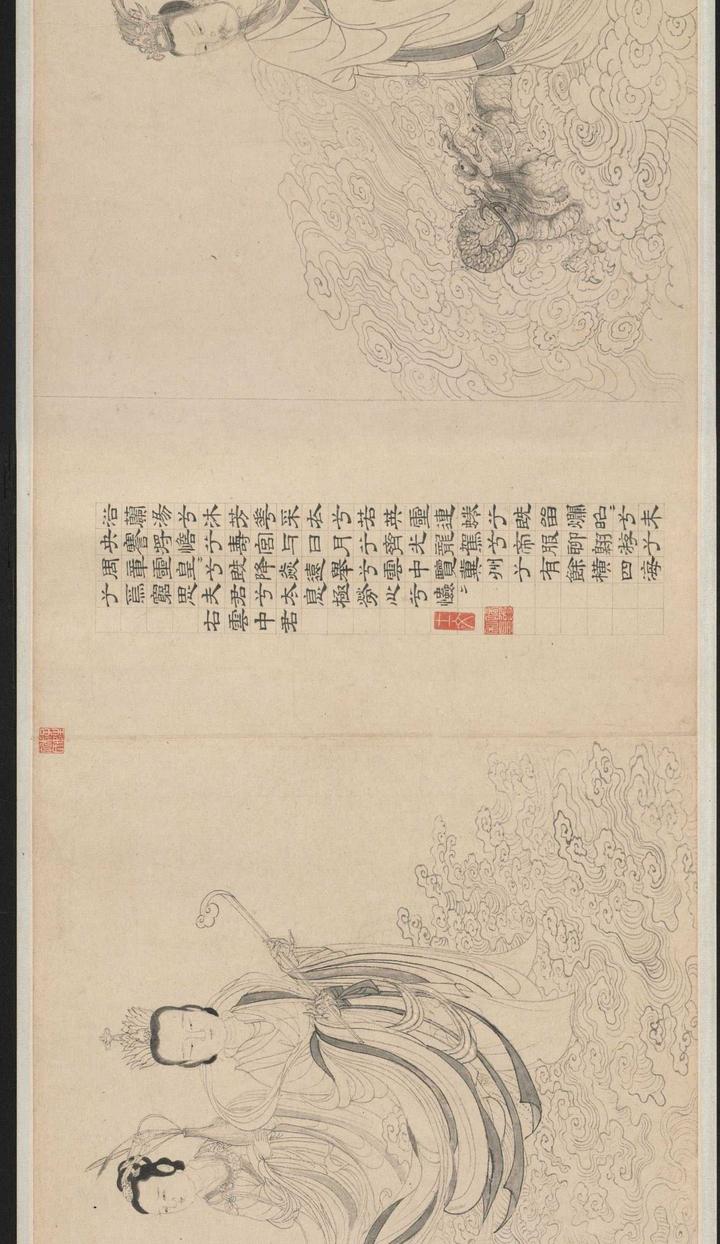 浴蘭湯兮沐芳華采衣兮若英靈連蜷兮既留爛昭〻兮未
央謇將憺兮壽宮与日月兮齊光龍駕兮帝服聊翱游兮
周章靈皇〻兮既降猋遠舉兮雲中覽冀州兮有餘橫四海
兮焉窮思夫君兮太息極勞心兮忡〻
右雲中君